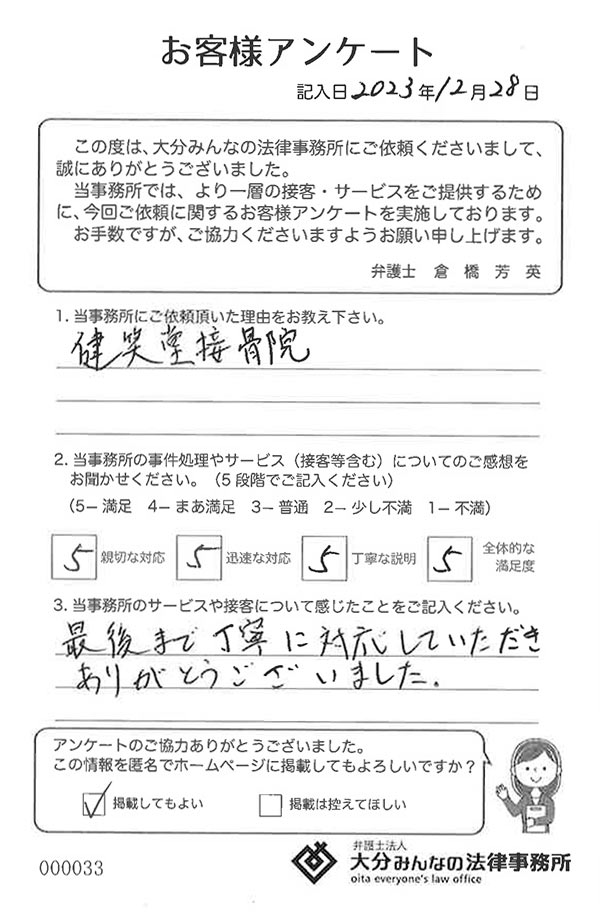 お客様アンケート
記入日2023年12月28日
この度は、大分みんなの法律事務所にご依頼くださいまして、
誠にありがとうございました。
当事務所では、より一層の接客・サービスをご提供するため
に、今回ご依頼に関するお客様アンケートを実施しております。
お手数ですが、ご協力くださいますようお願い申し上げます。
弁護士 倉橋芳英
1. 当事務所にご依頼頂いた理由をお教え下さい。
健笑堂接骨院
2. 当事務所の事件処理やサービス（接客等含む）についてのご感想を
お聞かせください。（5段階でご記入ください）
（5－満足 4－まあ満足 3－普通 2－少し不満 1－不満）
5 親切な対応 5 迅速な対応 5 丁寧な説明 5 全体的な
満足度
3. 当事務所のサービスや接客について感じたことをご記入ください。
最後まで丁寧に対応していただき
ありがとうございました.
アンケートのご協力ありがとうございました。
この情報を匿名でホームページに掲載してもよろしいですか？
掲載してもよい 掲載は控えてほしい
000033
弁護士法人
大分みんなの法律事務所
oita everyone's law office